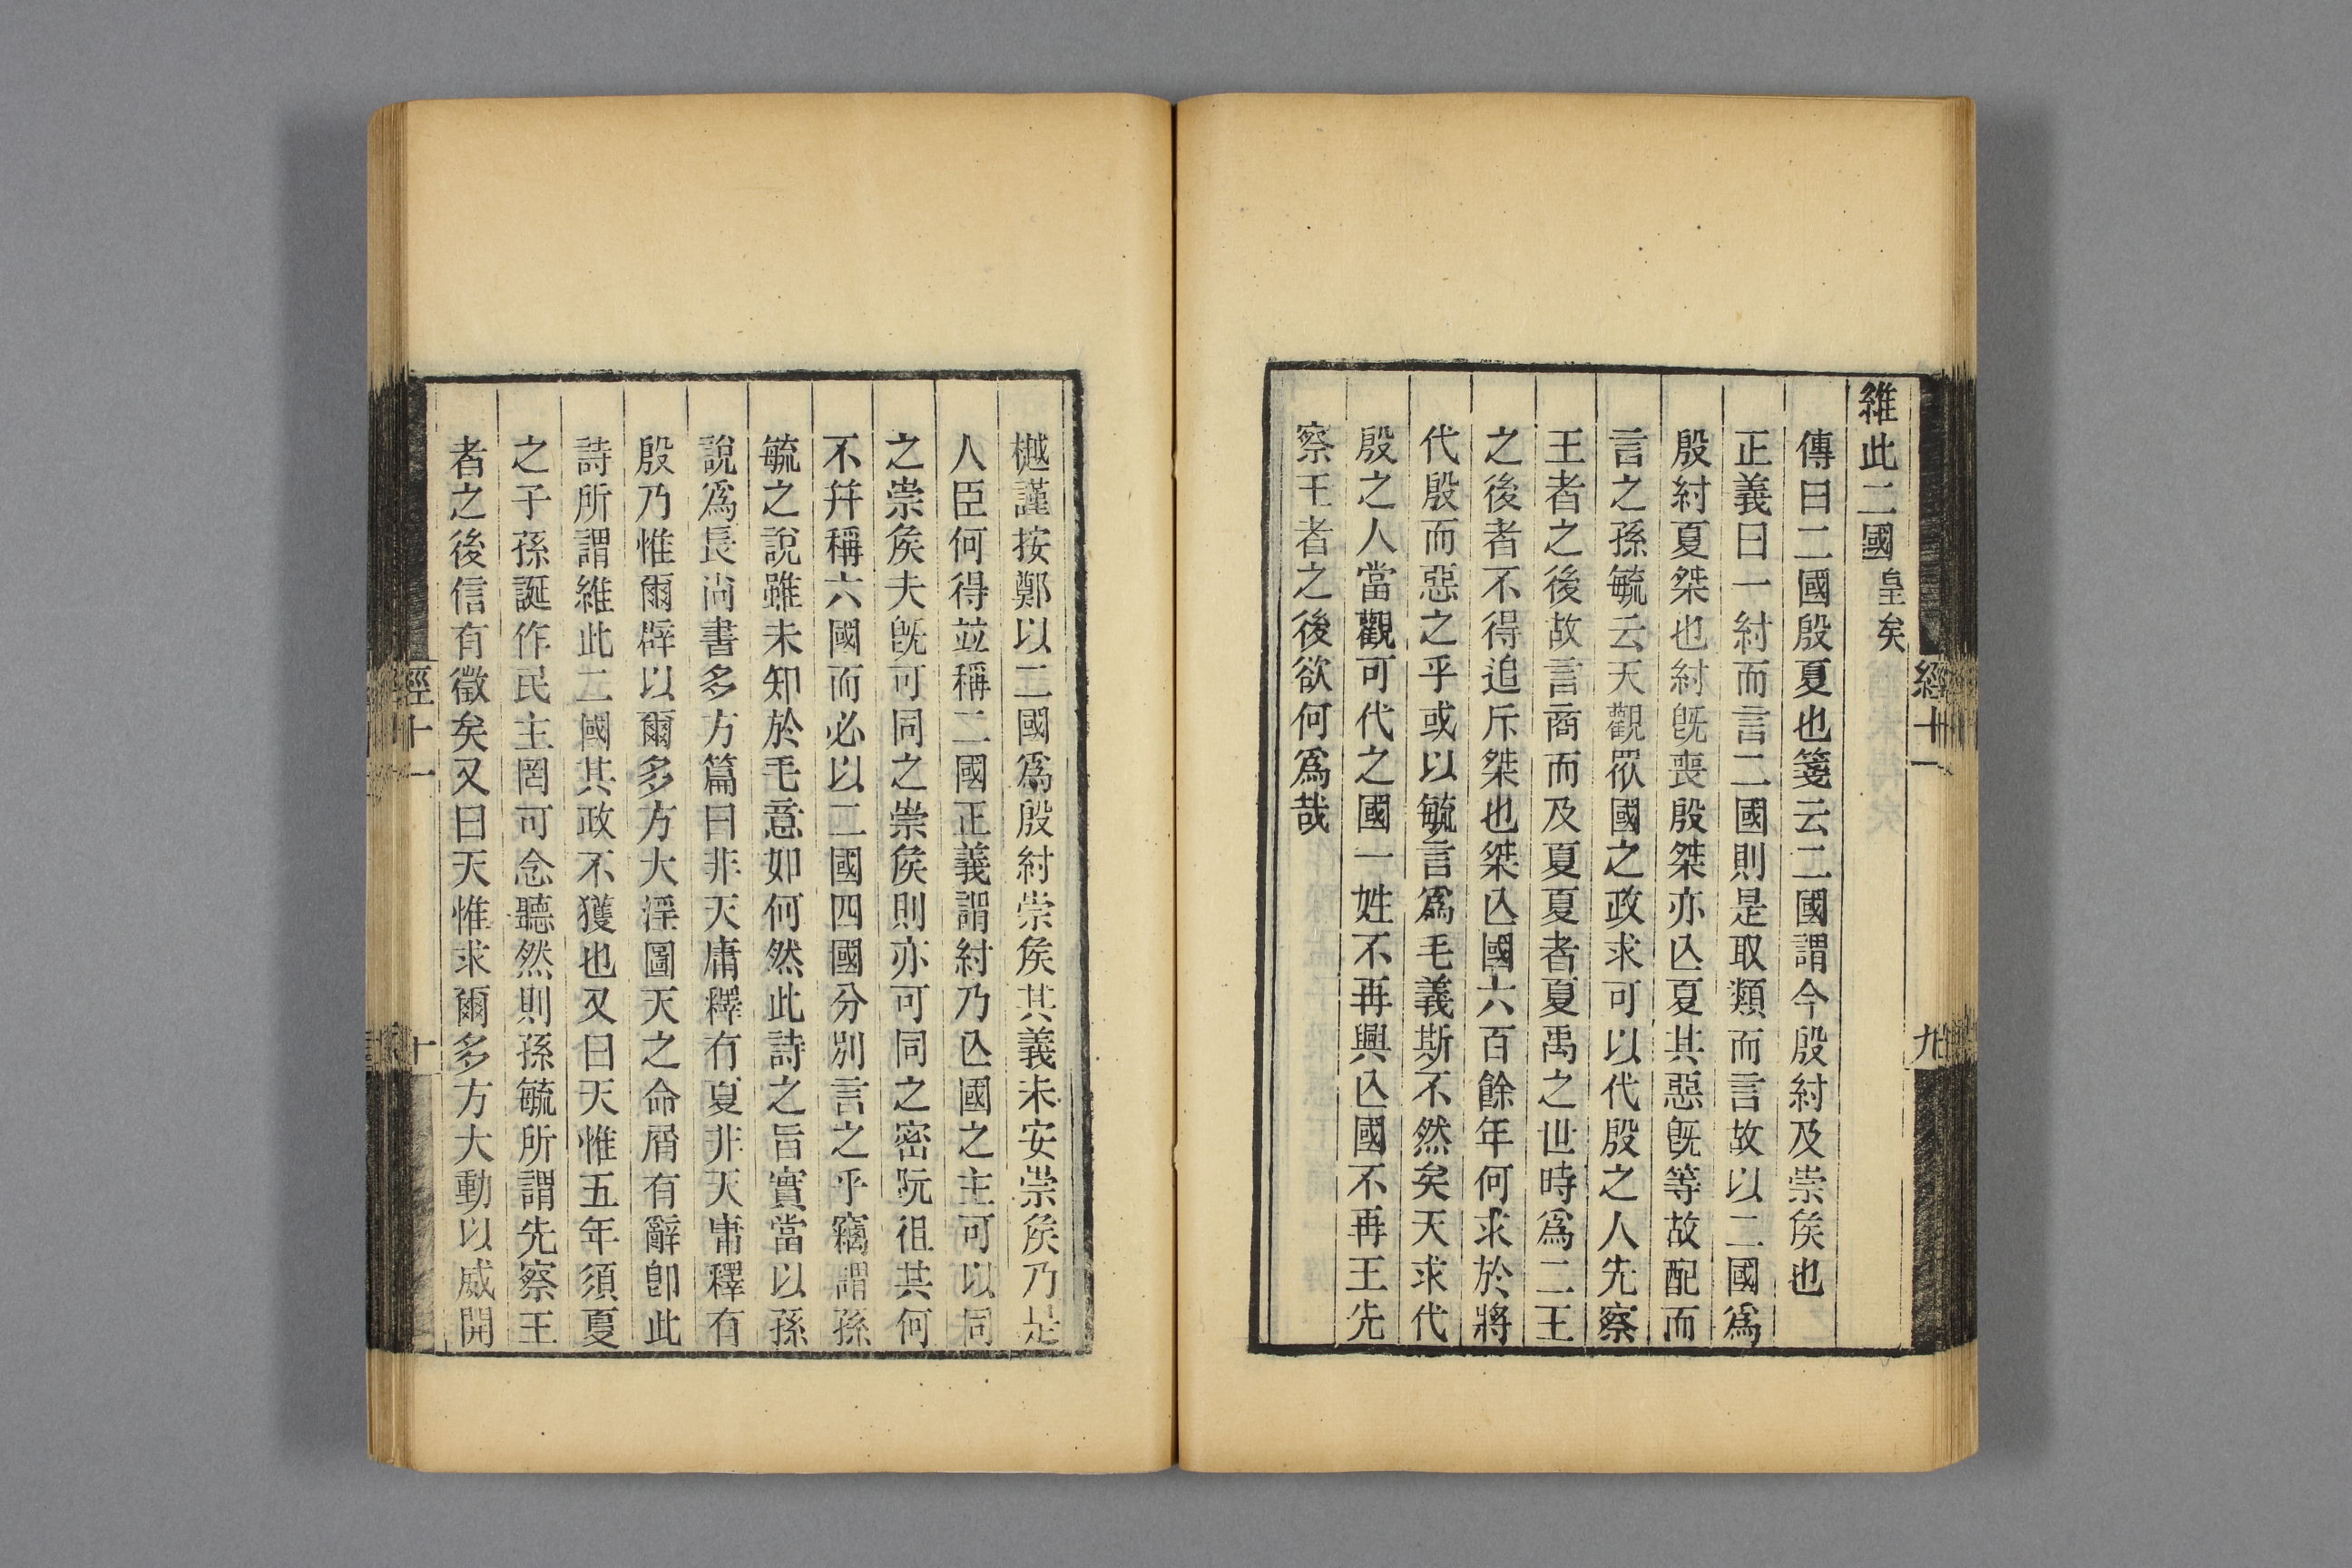 維此二國皇矣
傳曰二國殷夏也箋云二國謂今殷紂及崇矦也
正義曰一紂而言二國則是取類而言故以二國爲
殷紂夏桀也紂旣喪殷桀亦亾夏其惡旣等故配而
言之孫毓云天觀眾國之政求可以代殷之人先察
王者之後故言商而及夏夏者夏禹之世時爲二王
之後者不得追斥桀也桀亾國六百餘年何求於將
代殷而惡之乎或以毓言爲毛義斯不然矣天求代
殷之人當觀可代之國一姓不再興亾國不再王先
察王者之後欲何爲哉
經十一
九
樾謹按鄭以二國爲殷紂崇矦其義未安崇矦乃是
人臣何得竝稱二國正義謂紂乃亾國之主可以同
之崇矦夫旣可同之崇矦則亦可同之密阮徂共何
不幷稱六國而必以二國四國分別言之乎竊謂孫
毓之說雖未知於毛意如何然此詩之旨實當以孫
說爲長尚書多方篇曰非天庸釋有夏非天庸釋有
殷乃惟爾辟以爾多方大淫圖天之命屑有辭卽此
詩所謂維此二國其政不獲也又曰天惟五年須夏
之子孫誕作民主罔可念聽然則孫毓所謂先察王
者之後信有徵矣又曰天惟求爾多方大動以威開
經十一
十